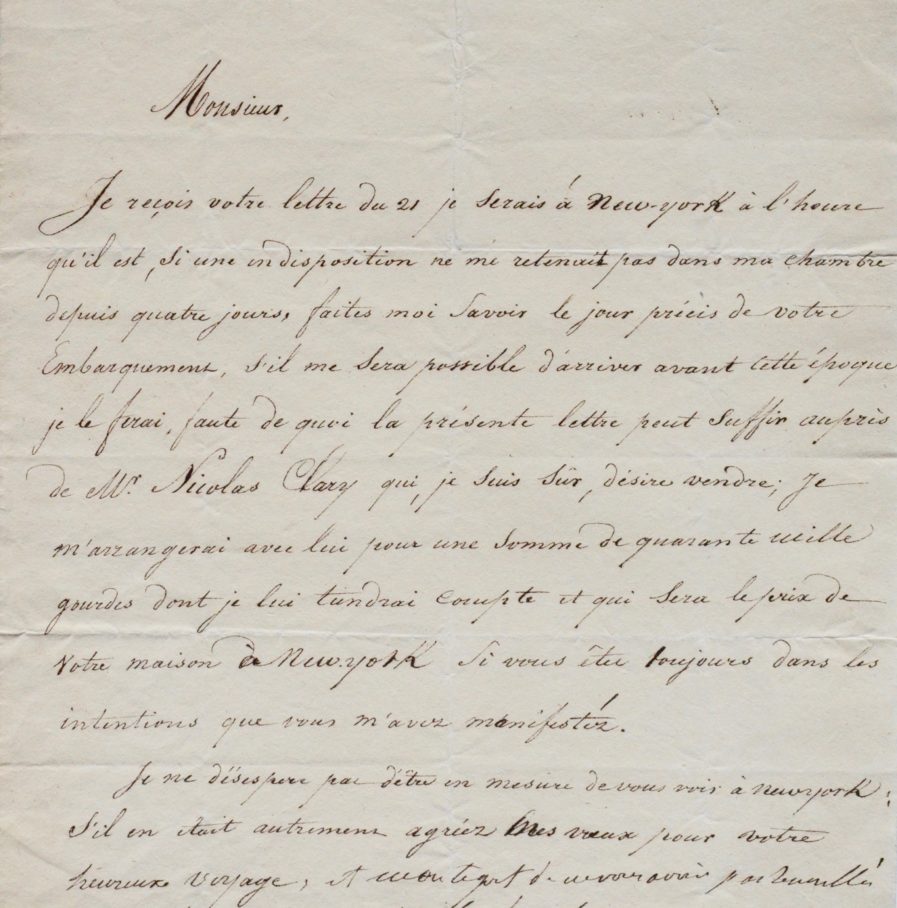 Monsieur,
Je reçois votre lettre du 21 je serais à New-york à l'heure
qu'il est, si une indisposition ne me retenait pas dans ma chambre
depuis quatre jours, faites moi savoir le jour précis de votre
Embarquement, s'il me sera possible d'arriver avant cette époque
je le ferai, faute de quoi la présente lettre peut suffir auprès
de Mr. Nicolas Clary qui, je suis sûr, désire vendre; Je
m'arrangerai avec lui pour une somme de quarante mille
gourdes dont je lui tiendrai compte et qui sera le prix de
votre maison de New-york si vous êtes toujours dans les
intentions que vous m'avez manifestéz.
Je ne désespere pas d'être en mesure de vous voir à newyork:
S'il en était autrement agréez mes vœux pour votre
heureux voyage, et mon regret de ne vous avoir pas